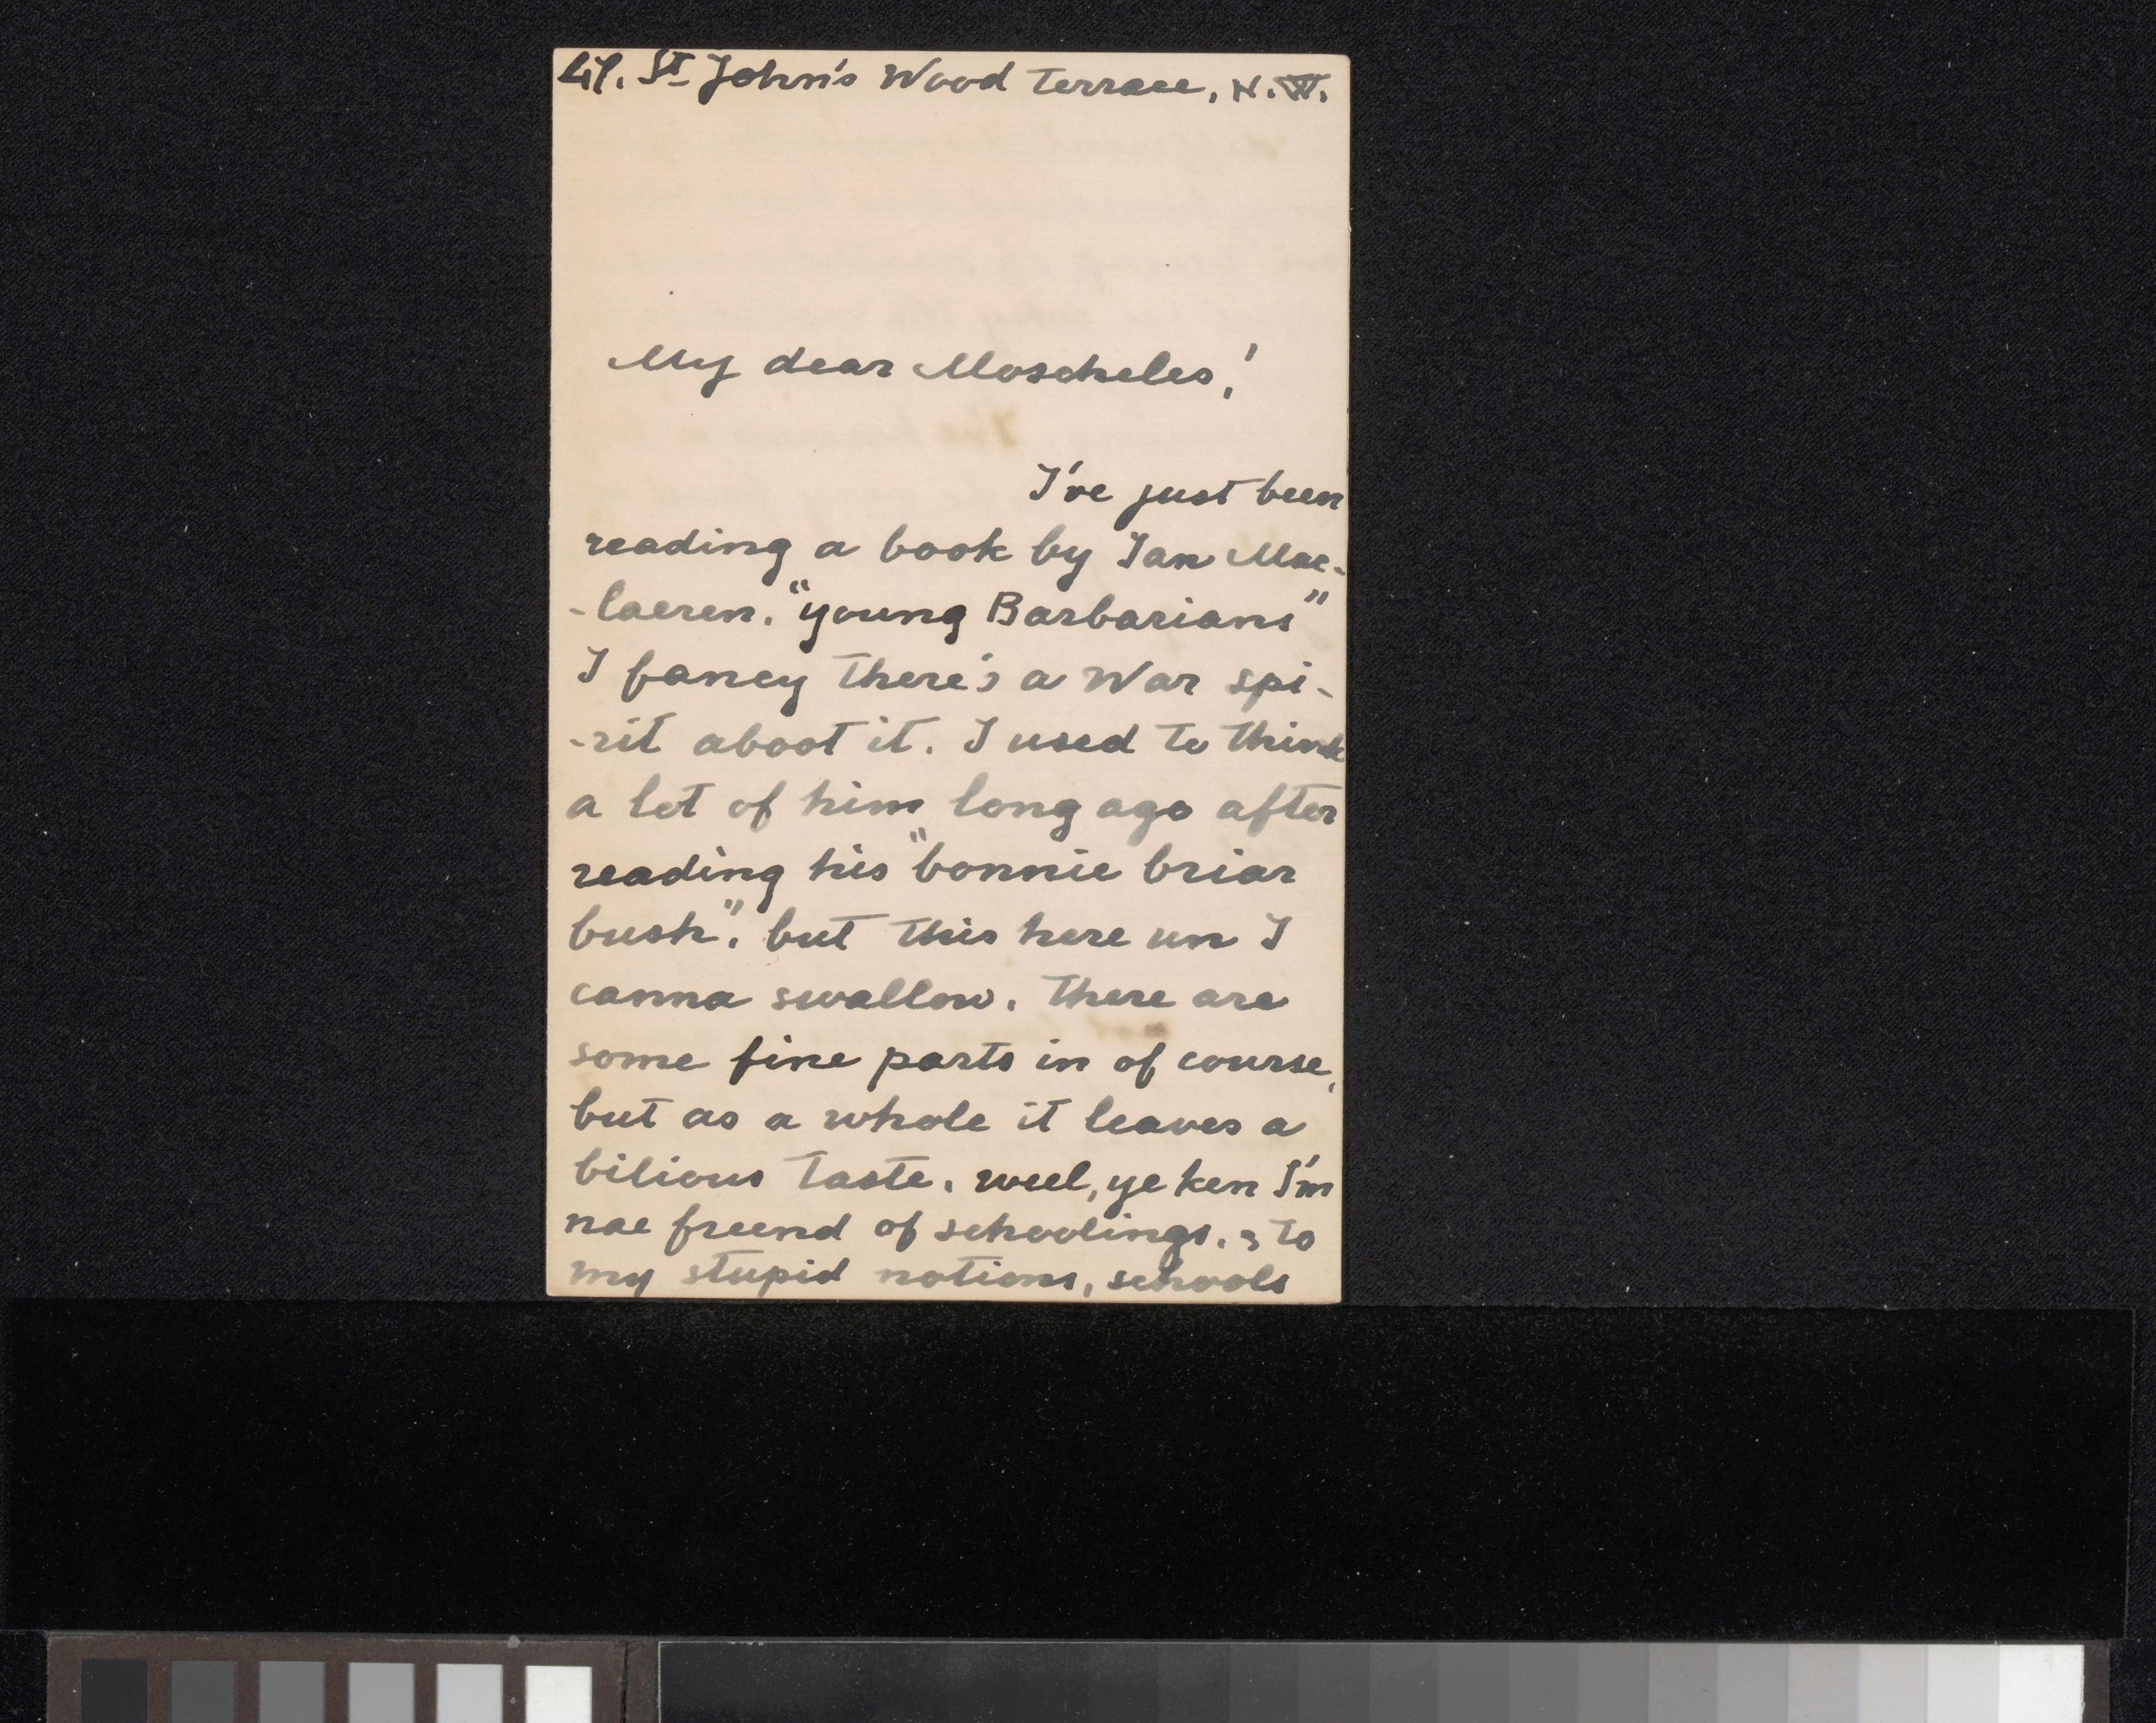 47. St John's Wood Terrace, N.W.
My dear Moscheles,!
I've just been
reading a book by Ian Mac-
-laeren. "young Barbarians"
I fancy there's a War spi-
-rit aboot it. I used to think
a lot of him long ago after
reading his "bonnie briar
bush", but this here un I
canna swallow. There are
some fine parts in of course,
but as a whole it leaves a
bilious taste. weel, ye ken I'm
nae freend of schoolings. to
my stupid notions, schools